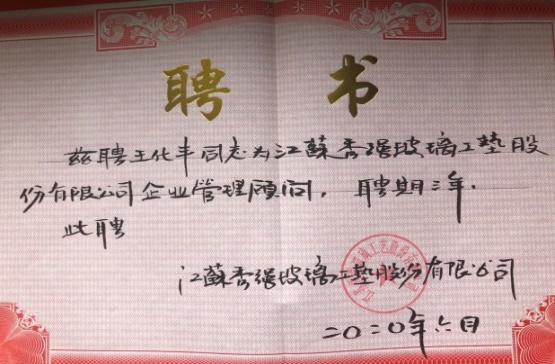 聘 书
兹聘王化丰同志为江蘇秀强玻璃工艺股
份有限公司企业管理顾问，聘期三年.
此聘
江蘇秀强玻璃工艺股份有限公司
二〇二〇年六月